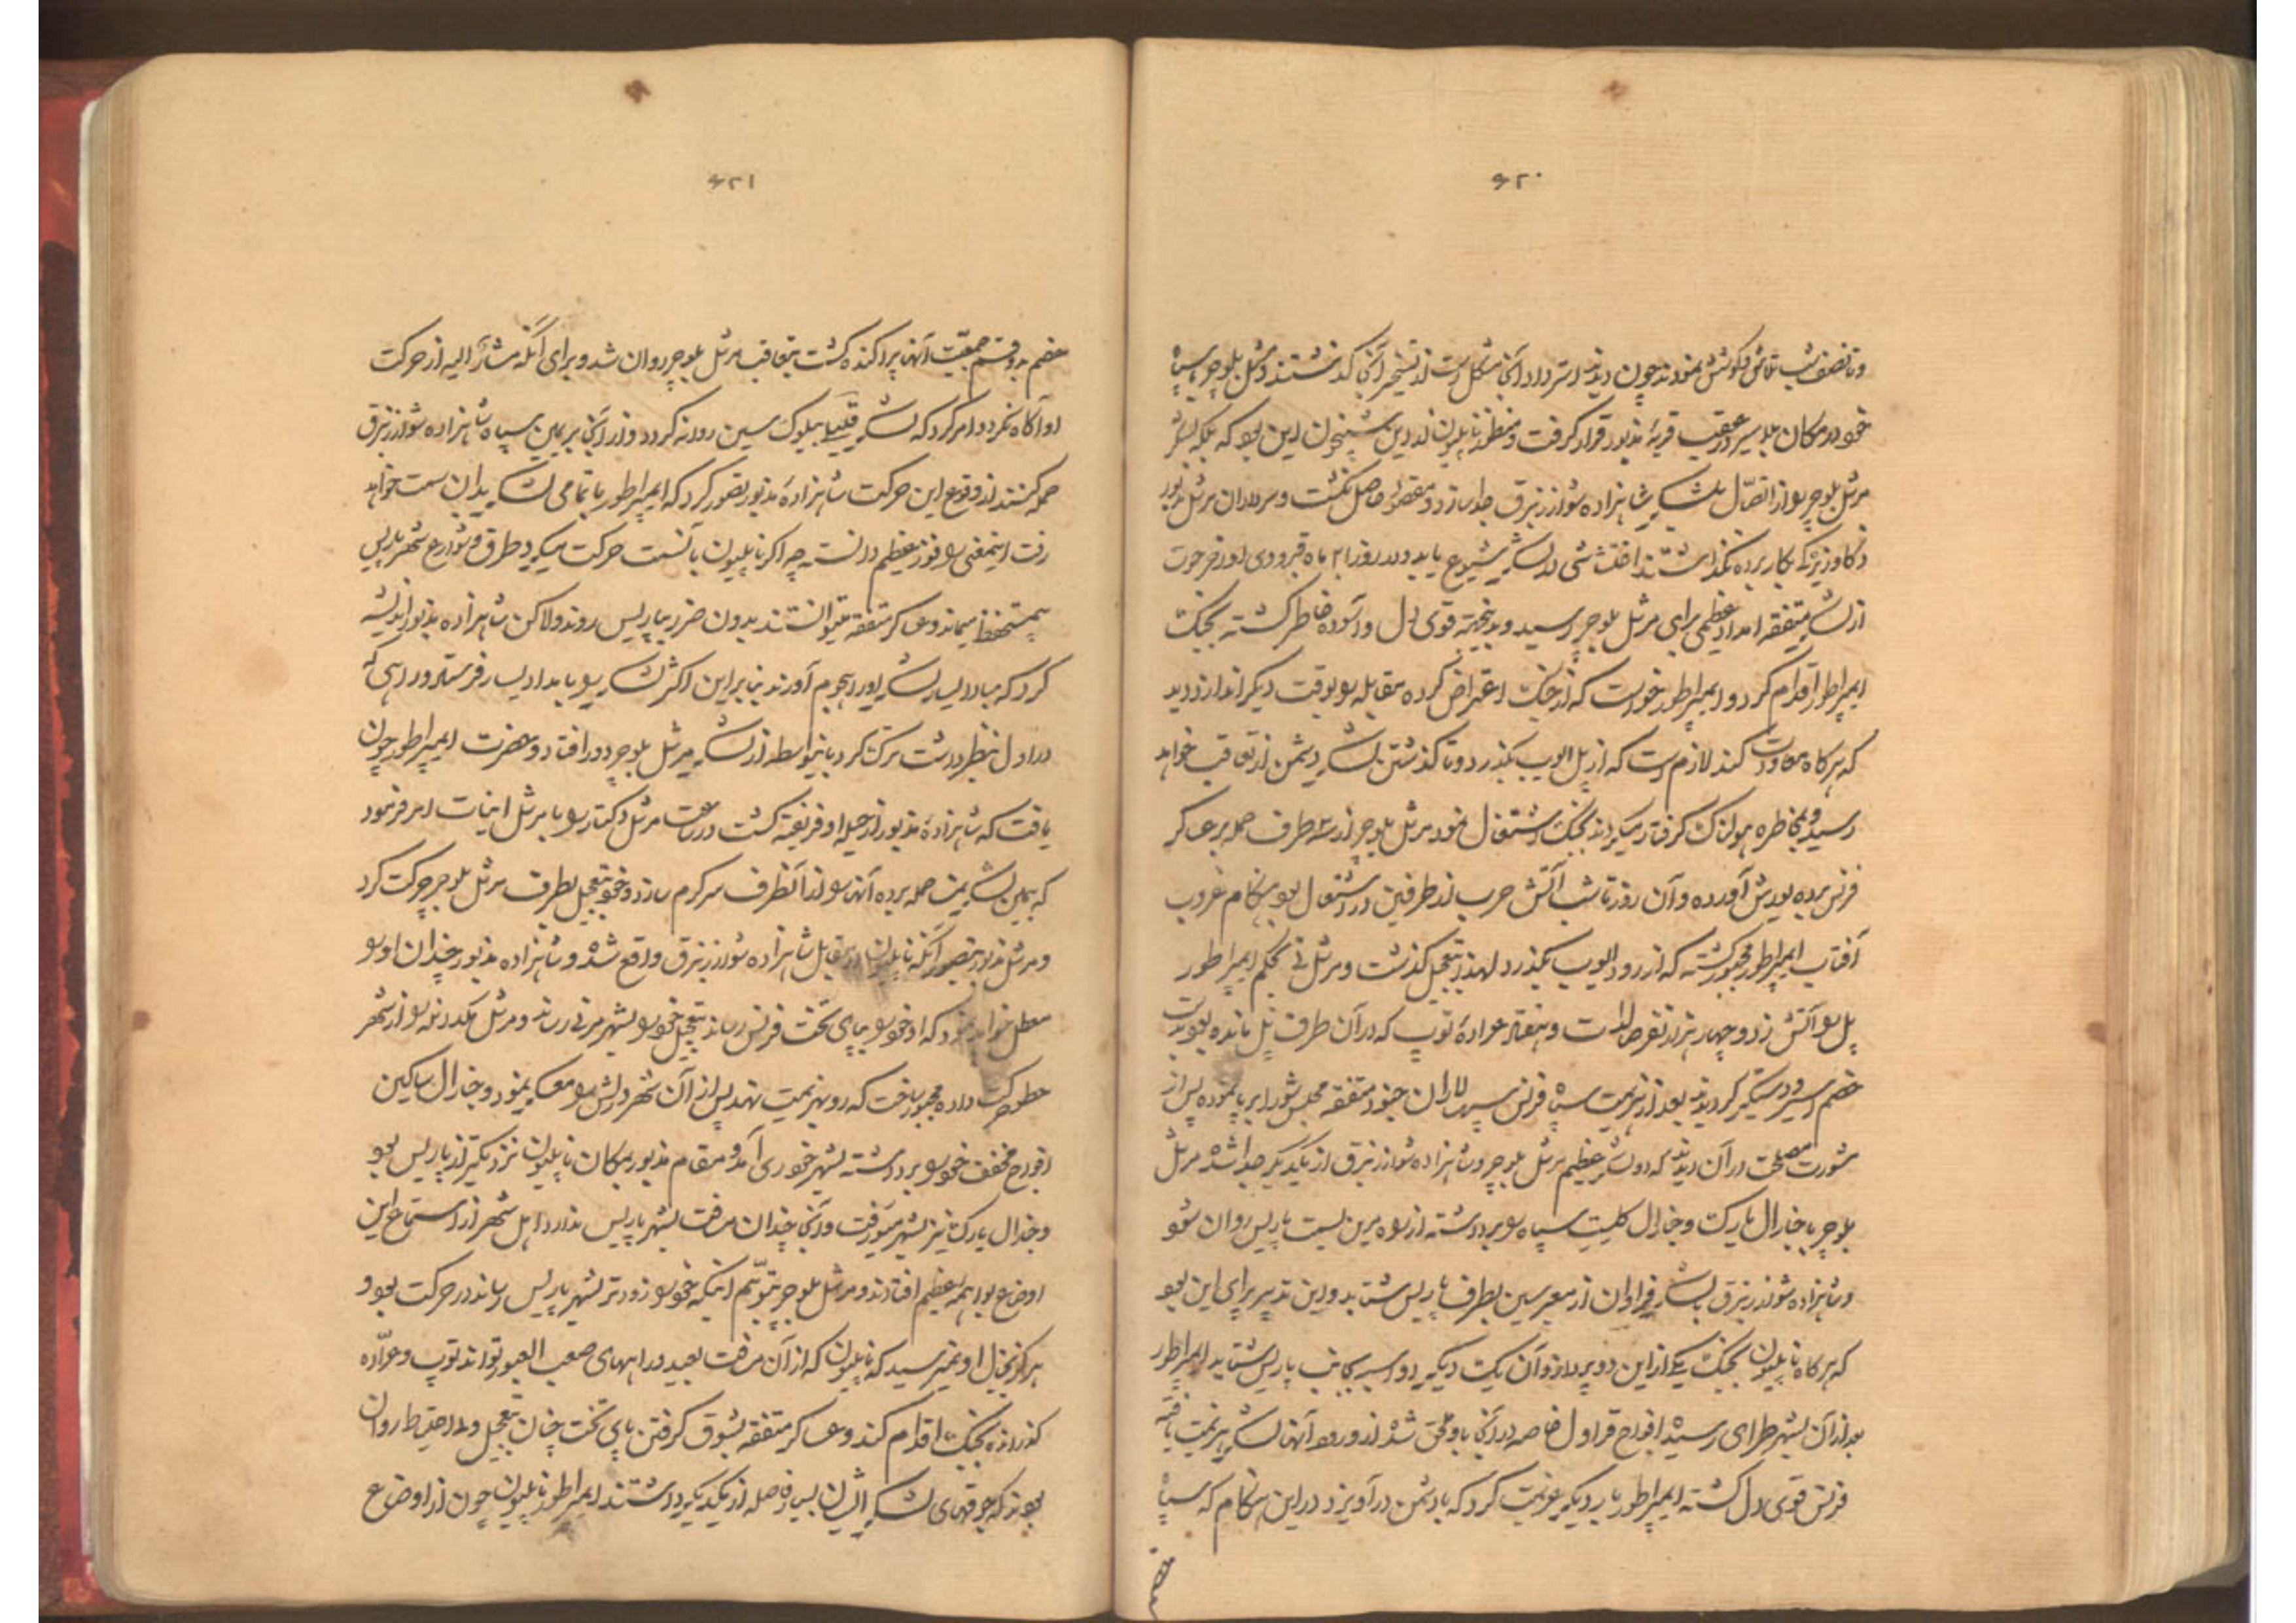 ۶۲۰
و تا نصف شب تلاش و کوشش نمودند چون دیدند استرداد آنجا مشکل است از تسخیر آنجا گذشتند و مرشل بلوچر با سپاه
خود در مکان بلاسیر در عقب قریهٔ مذبور قرار گرفت و منظور ناپلیون از این شبیخون این بود که بلکه لشکر
مرشل بلوچر را از اتصال بلشکر شاهزاده شوارزنبرق جدا سازد و مقصود حاصل نگشت و سرداران مرشل مذبور
ذکاوت بزرگ بکار برده نگذاشتند اغتشاشی در لشکر شیوع یابد و در روز ۲ ماه فبرودی
از لشکر متفقه امداد عظیمی برای مرشل بلوچر رسید و بدینجهت قوی دل و آسوده خاطر گشته بجنگ
ایمپراطور اقدام کرد و ایمپراطور خواست که از جنگ اعتراض کرده مقابله را بوقت دیگر اندازد دید
که هرگاه معاودت کند لازم است که از پل الوب بگذرد و تا گذشتن لشکر دشمن از تعاقب خواهد
رسید و بمخاطره هولناک گرفتار میگردد بجنگ اشتغال نمود مرشل بلوچر از سه طرف حمله بر عساکر
فرنس برده یورش آورده و آن روز تا شب آتش حرب از طرفین در اشتعال بود هنگام غروب
آفتاب ایمپراطور مجبور گشته که از رود الوب بگذرد لهذا بتعجیل گذشت و مرشل نی بحکم ایمپراطور
پل را آتش زد و چهار هزار نفر صالدات و هفتاد عرادهٔ توپ که در آن طرف پل مانده بود بدست
خصم اسیر و دستگیر گردیدند بعد از هزیمت سپاه فرنس سپهسالاران جنود متفقه مجلس شورا برپا نموده پس از
مشورت مصلحت در آن دیدند که دو لشکر عظیم مرشل بلوچر و شاهزاده شوارزنبرق از یکدیگر جدا شده مرشل
بلوچر با جنارال یارک و جنارال کلیست سپاه را برداشته از راه مرن بسمت پاریس روان شود
و شاهزاده شوارزنبرق با لشکر فراوان از معبر سین بطرف پاریس شتابد و این تدبیر برای این بود
که هرگاه ناپلیون بجنگ یکی از این دو پردازد آن یک دیگر بجانب پاریس شتابد ایمپراطور
بعد از آن بشهر طرای رسیده افواج قراول خاصه در آنجا باو ملحق شده از ورود آنها لشکر هزیمت یافته
فرنس قوی دل گشته ایمپراطور بار دیگر عزیمت کرد که با دشمن در آویزد در این هنگام که سپاه
خصم
۶۲۱
خصم بدو قسم جمعیت آنها پراکنده گشت بتعاقب مرشل بلوچر روان شد و برای آنکه مشارٌ الیه از حرکت
او آگاه نگردد امر کرد که لشکر قلیلی ببلوک سین روانه گردد و از آنجا بر یمین سپاه شاهزاده شوارزنبرق
حمله کنند از وقوع این حرکت شاهزادهٔ مذبور تصور کرد که ایمپراطور با تمامی لشکر بدان سمت خواهد
رفت اینمعنی را فوز عظیم دانست چه اگر ناپلیون بآنسمت حرکت میکرد طرق و شوارع شهر پاریس
بی مستحفظ میماند و عساکر متفقه میتوانستند بدون ضرر بپاریس روند ولاکن شاهزاده مذبور اندیشه
کرد که مبادا یسار لشکر او را هجوم آورند بنابراین اکثر لشکر را بامداد یسار فرستاد و راهی که
در اول بنظر داشت ترک کرد باینواسطه از لشکر مرشل بلوچر دور افتاد و حضرت ایمپراطور چون
یافت که شاهزادهٔ مذبور از حیله او فریفته گشت در ساعت مرشل وکتار را با مرشل امر فرمود
که بیمین لشکر حمله برده آنها را از آنطرف سرگرم سازد و خود بتعجیل بطرف مرشل بلوچر حرکت کرد
و مرشل مذبور بتصور آنکه ناپلیون در مقابل شاهزاده شوارزنبرق واقع شده و شاهزاده مذبور چندان او را
معطل خواهد نمود که او خود را بپای تخت فرنس رساند بتعجیل خود را بشهر مرنی رساند و مرشل مکدونلد را از شهر
حرکت داده مجبور ساخت که رو بهزیمت نهد پس از آن شهر را معسکر نمود و جنارال ساکین
افواج مخفف خود را برداشته بشهر آمد و مقام مذبور بمکان ناپلیون نزدیکتر از پاریس بود
و جنرال یارک نیز بشهر میرفت و آنجا چندان مسافت بشهر پاریس ندارد اهل شهر از استماع این
اوضاع بواهمه عظیم افتادند و مرشل بلوچر بتوهم اینکه خود را زودتر بشهر پاریس رساند در حرکت بود و
هرگز بخیال او نمیرسید که ناپلیون که از آن مسافت بعید و راههای صعب العبور تواند توپ و عراده
گذرانده بجنگ اقدام کند و عساکر متفقه بشوق گرفتن پای تخت چنان بتعجیل و بلا احتیاط روان
بودند که جوقهای لشکر ایشان بسیار فاصله از یکدیگر داشتند ایمپراطور ناپلیون چون از اوضاع